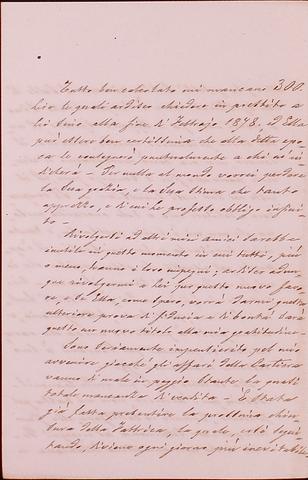 Tutto ben calcolato mi mancano 300
lire le quali ardisco chiedere in prestito a
lei sino alla fine di Febbrajo 1878, e Ella
può essere ben certissima che alla detta epo
ca le consegnerò puntualmente a chi m'in
dicherà - Per nulla al mondo vorrei perdere
la Sua grazia, e la Sua stima che tanto
apprezzo, e di cui le professo obbligo infini
to -
Rivolgersi ad altri miei amici sarebbe
inutile in questo momento in cui tutti, più
o meno, hanno i loro impegni; ardisco adun
que rivolgermi a Lei per questo nuovo favo
re, e se Ella, come spero, vorrà darmi questa
ulteriore prova di fiducia e di bontà sarà
questo un nuovo titolo alla mia gratitudine.
Sono seriamente impensierito pel mio
avvenire giacchè gli affari della Cartiera
vanno di male in peggio stante la quasi
totale mancanza di vendita - È stata
già fatta presentire la prossima chiu
sura della Fabbrica, la quale, così segui
tando, diviene ogni giorno più inevitabile